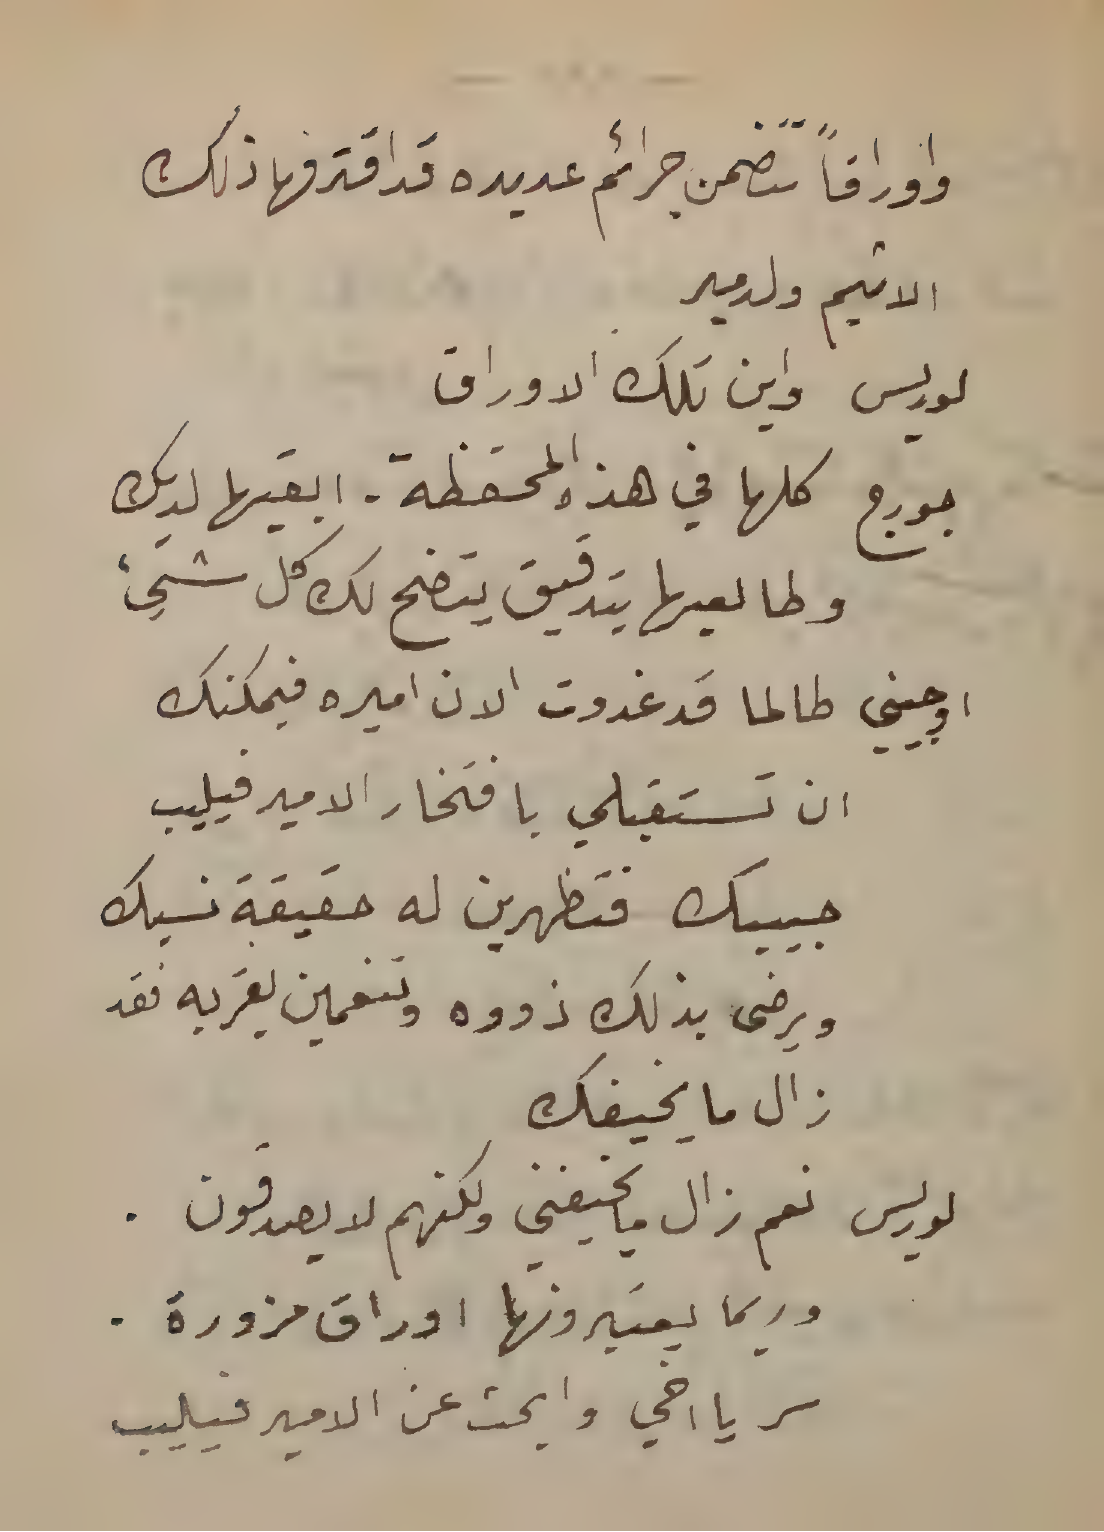 واوراقاً تتضمن جرائم عديده قد اقترفها ذلك
الاثيم ولدمير
لوريس واين تلك الاوراق
جورج كلها في هذه المحفظة - ابقيها لديك
وطالعيها بتدقيق يتضح لك كل شيء
اوجيني طالما قد غدوت الان اميره فيمكنك
ان تستقبلي بافتخار الامير فيليب
حبيبك فتظهرين له حقيقة نسبك
ويرضى بذلك ذووه وتنعمين بقربه فقد
زال ما يخيفك
لوريس نعم زال ما يخيفني ولكنهم لا يصدقون .
وربما يعتبرونها اوراق مزورة .
سر يا اخي وابحث عن الامير فيليب